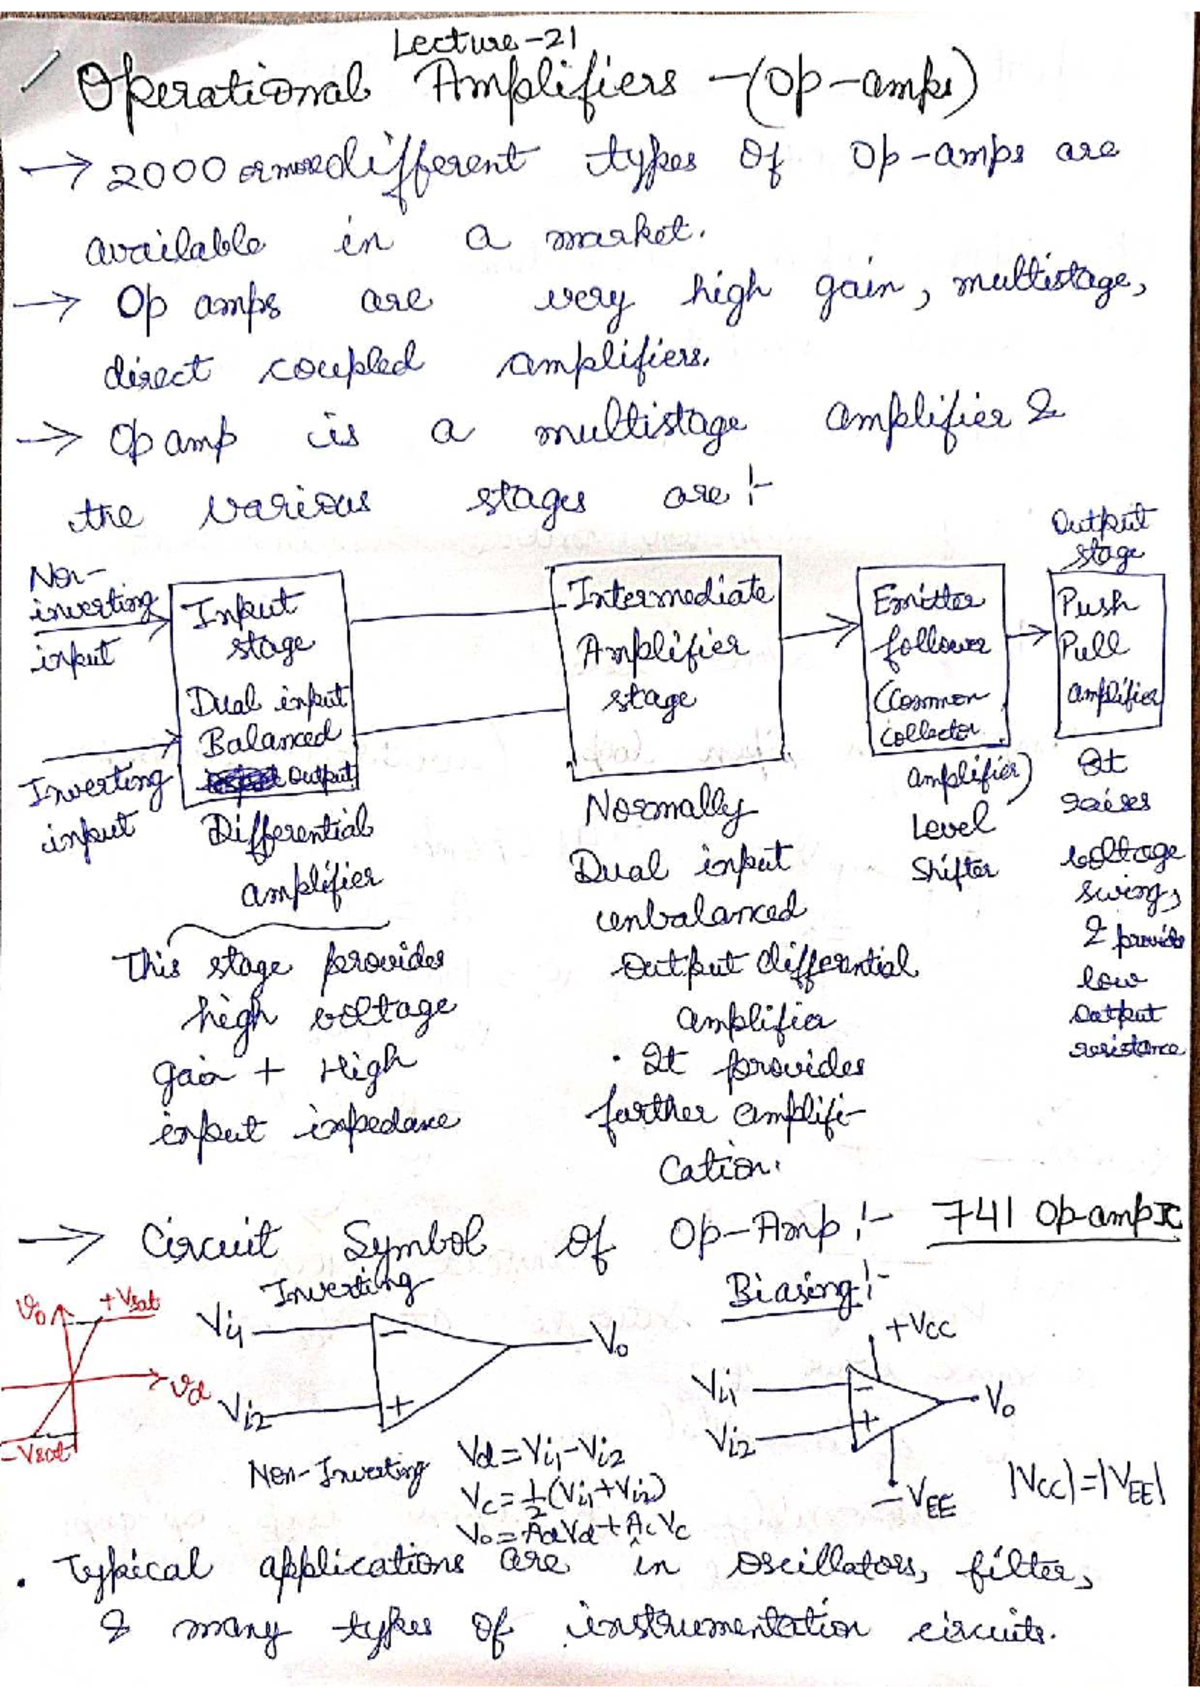 Lecture-21
Operational Amplifiers -(Op-amps)
→ 2000 or more different types of Op-amps are
available in a market.
→ Op amps are very high gain, multistage,
direct coupled amplifiers.
→ Op amp is a multistage amplifier &
the various stages are :-
Non-
inverting
input
Inverting
input
Input
stage
Dual input
Balanced
Output
Differential
amplifier
This stage provides
high voltage
gain + High
input impedance
Intermediate
Amplifier
stage
Normally
Dual input
unbalanced
Output differential
amplifier
· It provides
further amplifi-
cation.
Emitter
follower
(Common
collector
amplifier)
Level
Shifter
Output
stage
Push
Pull
amplifier
It
raises
voltage
swing,
& provide
low
output
resistance
→ Circuit Symbol of Op-Amp :- 741 Op-amp IC
Vo
+Vsat
Vd
-Vsat
Inverting
Vi1
−
Vo
Vi2
+
Non-Inverting
Vd = Vi1 - Vi2
Vc = 1/2 (Vi1 + Vi2)
Vo = AdVd + AcVc
Biasing :-
+VCC
Vi1
−
Vo
Vi2
+
-VEE
|VCC| = |VEE|
. Typical applications are in oscillators, filter,
& many types of instrumentation circuits.